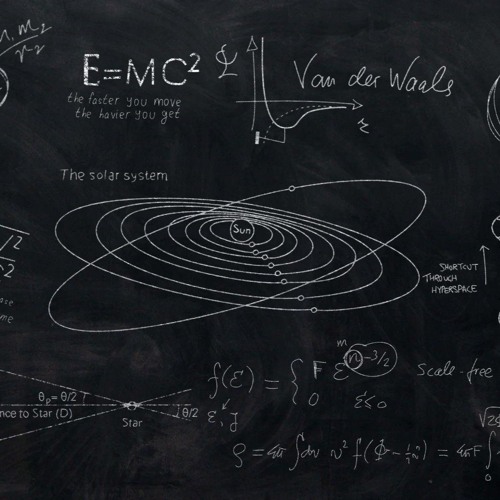 m₁ m₂
r²
E=MC²
the faster you move
the havier you get
Van der Waals
The solar system
Sun
SHORTCUT
THROUGH
HYPERSPACE
θₚ= θ/2
nce to Star (D)
Star
θ/2
f(ε) = { F ε
m
n -3/2
0
ε≤0
ε, J
Scale-free
ρ = 4π ∫dv v² f(Φ - ½v²) = 4πF ∫